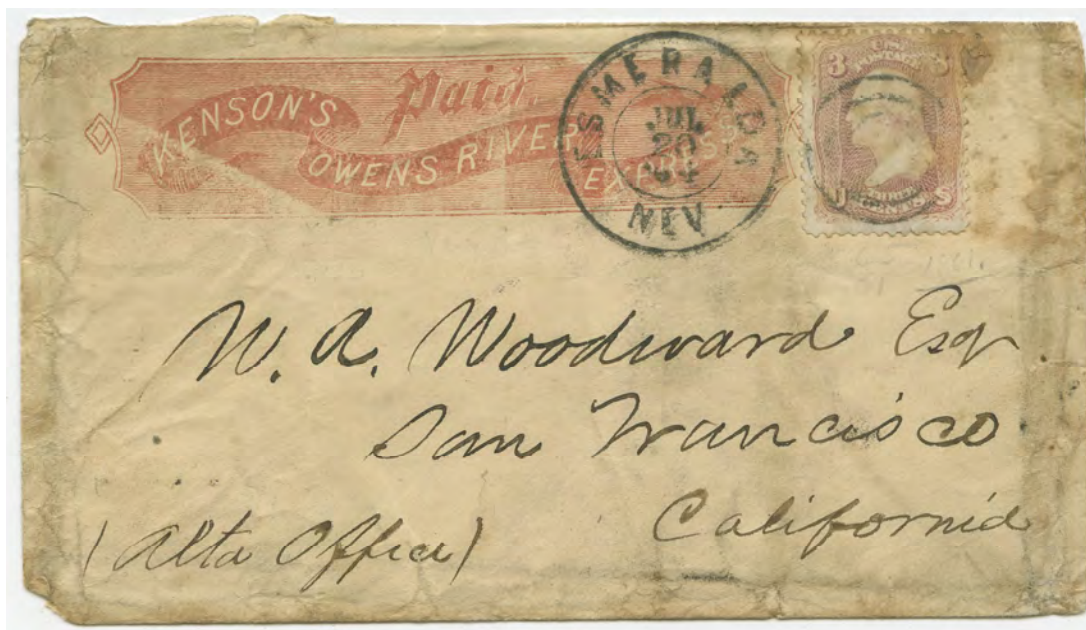 Paid.
KENSON'S
OWENS RIVER
EXPRESS
ESMERALDA
JUL
20
64
NEV
3
U.S.
POSTAGE
3
U
THREE
CENTS
S
W. A. Woodward Esqr
San Francisco
California
(Alta Office)